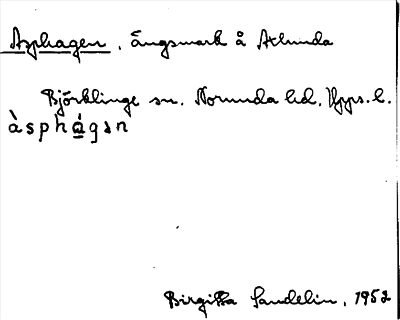 Asphagen, Ängsmark å Axlunda
Björklinge sn. Norunda hd. Upps. l.
àsphágən
Birgitta Sandelin, 1952